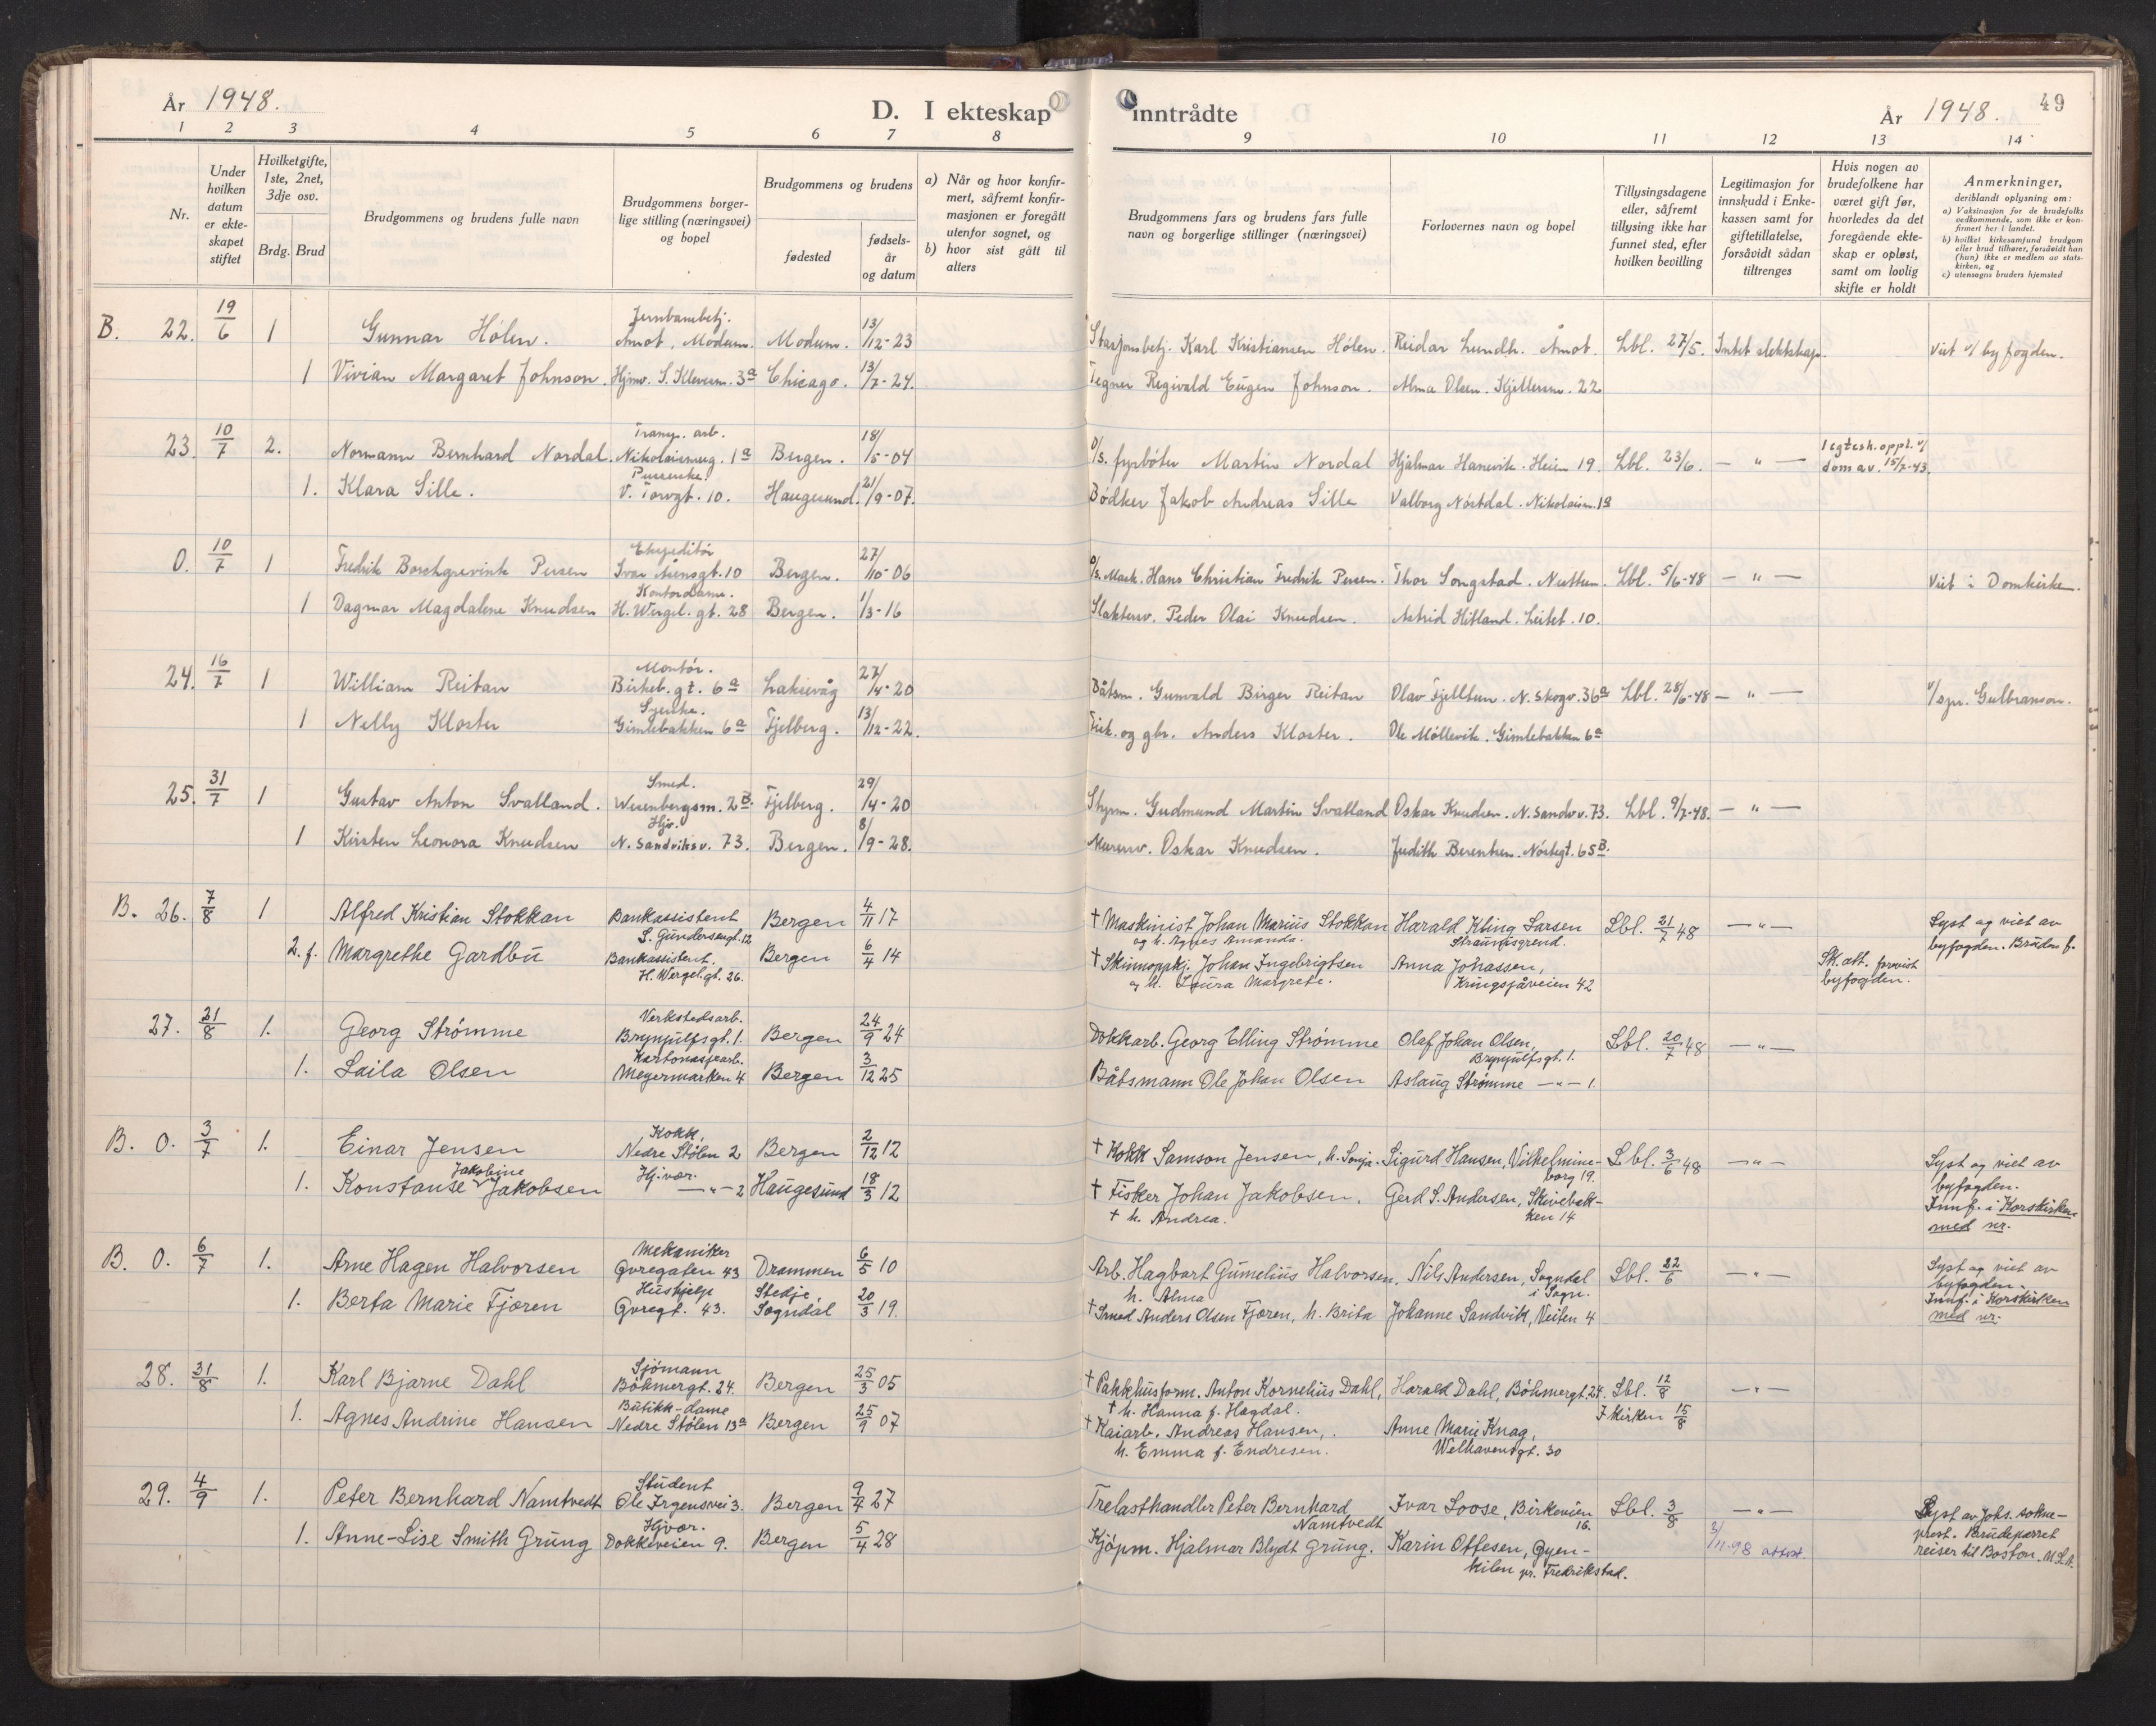 År 1948.
D. I ekteskap inntrådte
År 1948. 49
1 2 3 4 5 6 7 8 9 10 11 12 13 14
Nr.
Under hvilken datum er ekte-skapet stiftet
Hvilket gifte, 1ste, 2net, 3dje osv.
Brdg. Brud
Brudgommens og brudens fulle navn
Brudgommens borger-lige stilling (næringsvei) og bopel
Brudgommens og brudens
fødested
fødsels-år og datum
a) Når og hvor konfir-mert, såfremt konfir-masjonen er foregått utenfor sognet, og
b) hvor sist gått til alters
Brudgommens fars og brudens fars fulle navn og borgerlige stillinger (næringsvei)
Forlovernes navn og bopel
Tillysingsdagene eller, såfremt tillysing ikke har funnet sted, efter hvilken bevilling
Legitimasjon for innskudd i Enke-kassen samt for giftetillatelse, forsåvidt sådan tiltrenges
Hvis nogen av brudefolkene har været gift før, hvorledes da det foregående ekte-skap er opløst, samt om lovlig skifte er holdt
Anmerkninger, deriblandt oplysning om:
a) Vaksinasjon for de brudefolks vedkommende, som ikke er kon-firmert her i landet.
b) hvilket kirkesamfund brudgom eller brud tilhører, forsåvidt han (hun) ikke er medlem av stats-kirken, og
c) utensogns bruders hjemsted
B. 22. 19/6 1 Gunnar Hølen. Jernbanebetj. Åmot, Modum. Modum. 13/12-23 Stasjonsbetj. Karl Kristiansen Hølen. Reidar Lundh. Åmot. Lbl. 27/5. Intet slektskap. Viet v/ byfogden.
1 Vivian Margaret Johnson. Hjmv. S. Kleverm. 3a Chicago. 13/7-24. Tegner Regivald Eugen Johnson. Alma Olsen. Kjellersm. 22
23. 10/7 2. Normann Bernhard Nordal. Transp. arb. Nikolaismug. 1a Bergen. 18/5-04 D/s. fyrbøter Martin Nordal Hjalmar Hanevik. Heien 19. Lbl. 23/6. — " — 1 egtesk. oppl. v/ dom av. 15/7-43.
1. Klara Sille. V. Torvgt. 10. Haugesund. 21/9-07. Bødker Jakob Andreas Sille Valborg Nordal. Nikolaism. 1a
0. 10/7 1 Fredrik Borchgrevink Persen Ekspeditør Ivar Åsensgt. 10 Bergen. 27/10-06 Hans Christian Fredrik Persen. Thor Songstad. Nattun. Lbl. 5/6-48 — " — Viet i Domkirken.
1 Dagmar Magdalene Knudsen Kontordame. H. Wergel. gt. 28 Bergen. 1/3-16 Slaktersv. Peder Olai Knudsen. Astrid Hitland. Leitet. 10.
24. 16/7 1 William Reitan Montør. Birkeb. gt. 6a Laksevåg 27/4-20 Båtsm. Gunvald Birger Reitan Olav Fjelltun. N. Skogv. 36a Lbl. 28/6-48 — " — v/ spr. Gulbranson.
1 Nelly Kloster Syerske. Gimlebakken 6a Fjelberg. 13/12-22. Fisk. og gbr. Anders Kloster. Ole Møllevik. Gimlebakken 6a
25. 31/7 1 Gustav Anton Svalland. Smed. Wesenbergsm. 2B. Fjelberg. 29/4-20 Styrm. Gudmund Martin Svalland Oskar Knudsen. N. Sandv. v. 73. Lbl. 9/7-48. — " —
1 Kirsten Leonora Knudsen Hjv. N. Sandviksv. 73. Bergen. 8/9-28. Murersv. Oskar Knudsen. Judith Berentsen. Nøstegt. 65B.
B. 26. 7/8 1 Alfred Kristian Stokkan Bankassistent S. Gundersensgt. 12 Bergen 4/11 17 † Maskinist Johan Marius Stokkan og h. Agnes Amanda. Harald Kling Larsen Straumsgrend. Lbl. 21/7 48 — " — Lyst og viet av byfogden. Brudens f.
2. f. Margrethe Gardbu Bankassistent. H. Wergel. gt. 26. Bergen 6/4 14 † Skinnoppkj. Johan Ingebrigtsen og h. Laura Margrete. Anna Johassen, Kringsjåveien 42 Sk. att. forevist byfogden.
27. 21/8 1. Georg Strømme Verkstedsarb. Brynjulfsgt. 1. Bergen 24/9 24 Dokkarb. Georg Elling Strømme Olaf Johan Olsen, Brynjulfsgt. 1. Lbl. 20/7 48 — " —
1. Laila Olsen Kartonasjearb. Meyermarken 4 Bergen 3/12 25 Båtsmann Ole Johan Olsen Aslaug Strømme — " — 1.
B. 0. 3/7 1. Einar Jensen Kokk, Nedre Stølen 2 Bergen 2/12 12 † Kokk Samson Jensen, h. Sonja. Sigurd Hansen, Vilhelmine-borg 19. Lbl. 3/6 48 — " — Lyst og viet av byfogden. Innf. i Korskirken med nr.
1. Konstanse Jakobine Jakobsen Hj.vær. — " — 2 Haugesund 18/3 12 † Fisker Johan Jakobsen. † h. Andrea. Gerd S. Andersen, Skivebak-ken 14
B. 0. 6/7 1. Arne Hagen Halvorsen Mekaniker Øvregaten 43 Drammen 6/5 10 Arb. Hagbart Gumelius Halvorsen, h. Alma Nils Andersen, Sogndal i Sogn. Lbl. 22/6 — " — Lyst og viet av byfogden. Innf. i Korskirken med nr.
1. Berta Marie Fjæren Hushjelp Øvregt. 43. Stedje Sogndal 20/3 19. † Smed Anders Olsen Fjæren, h. Brita Johanne Sandvik, Veiten 4
28. 31/8 1. Karl Bjarne Dahl Sjømann Bøhmergt. 24. Bergen 25/3 05 † Pakkhusform. Anton Kornelius Dahl, † h. Hanna f. Hagdal. Harald Dahl, Bøhmergt. 24. Lbl. 12/8 — " —
1. Agnes Andrine Hansen Butikk-dame Nedre Stølen 13a Bergen 25/9 07 † Kaiarb. Andreas Hansen, h. Emma f. Endresen. Anne Marie Knag, Welhavensgt. 30 I kirken 15/8
29. 4/9 1. Peter Bernhard Namtvedt Student Ole Irgensvei 3. Bergen 9/4 27 Trelasthandler Peter Bernhard Namtvedt Ivar Loose, Birkeveien 16. Lbl. 3/8 — " — Lyst av Johs. sokne-prest. Brudeparret reiser til Boston. U.S.A.
1. Anne-Lise Smith Grung Hjvær. Dokkeveien 9. Bergen 5/4 28 Kjøpm. Hjalmar Blydt Grung. Karin Ottesen, Øyen-kilen pr. Fredrikstad. 3/11-98 attest.